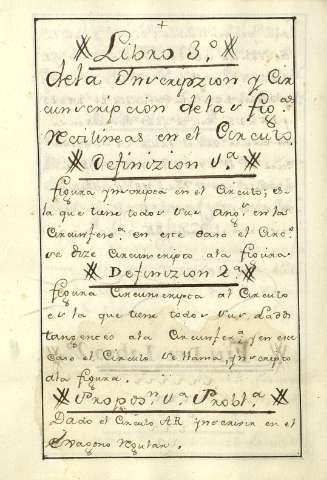 Libro 3.º
dela Inscripzion y Cir
cunscripcion delas fig.as
Rectilineas en el Circulo.
Definizion 1.ª
figura ynscripta en el Circulo; es
la que tiene todos sus ang.s en la
Circunfer.ª en este caso el Circ.º
se dize Circunscripto ala figura
Definizion 2.ª
figura Circunscripta al Circulo
es la que tiene todos sus lados
tangentes ala Circunfer.ª y en este
caso el Circulo se llama, ynscripto
ala figura.
Propos.n 1.ª Probl.ª
Dado el Circulo AR ynscrivir en el
Exagono Regular.